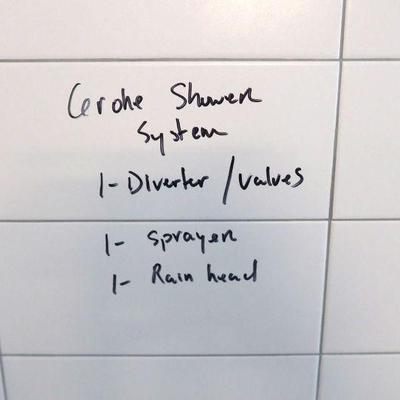 Grohe Shower
System
1- Diverter / valves
1- sprayer
1- Rain head